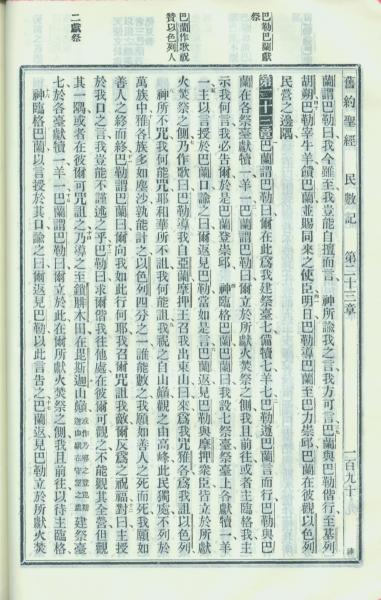 舊約聖經 民數記 第二十三章 一百九十
蘭謂巴勒曰我今雖至我豈能自擅而言、神所諭我之言我方可言巴蘭與巴勒偕行至基列
胡瑣巴勒宰牛羊饋巴蘭並賜同來之使臣明日巴勒導巴蘭至巴力崇邱巴蘭在彼觀以色列
民營之邊隅
巴勒巴蘭獻祭
第二十三章 巴蘭謂巴勒曰爾在此爲我建祭臺七備犢七羊七巴勒遵巴蘭言而行巴勒與巴
蘭在各祭臺獻犢一羊一巴蘭謂巴勒曰爾立於爾所獻火焚祭之側我且前往或者主臨格我主
示我何言我必告爾於是巴蘭登崇邱 神臨格巴蘭巴蘭曰我設七祭臺祭臺上各獻犢一羊
一主以言授於巴蘭口諭之曰爾返見巴勒當如是言巴蘭返見巴勒與摩押衆臣皆立於所獻
巴蘭作歌祝贊以色列人
火焚祭之側乃作歌曰巴勒導我自亞蘭摩押王召我出東山曰來爲我咒雅各爲我詛以色列
神所不咒我何能咒耶和華所不詛我何能詛我視之自山巔觀之自高峰此民獨處不列於
萬族中雅各族多如塵沙孰能計之以色列四分之一誰能數之我願如善人之死而死我願如
善人之終而終巴勒謂巴蘭曰爾向我如此行何耶我召爾咒詛我敵爾反爲之祝福對曰主授
於我口之言我豈能不謹述之乎巴勒曰求爾偕我往他處在彼爾可觀之不能觀其全營但觀
二獻祭
其一隅或者在彼爾可咒詛之乃導之至鎖腓木田在毘斯迦山巔建祭臺
七於各臺獻犢一羊一巴蘭謂巴勒曰爾立於此在爾所獻火焚祭之側我且前往以待主臨格
神臨格巴蘭以言授於其口諭之曰爾返見巴勒以此言告之巴蘭返見巴勒立於所獻火焚